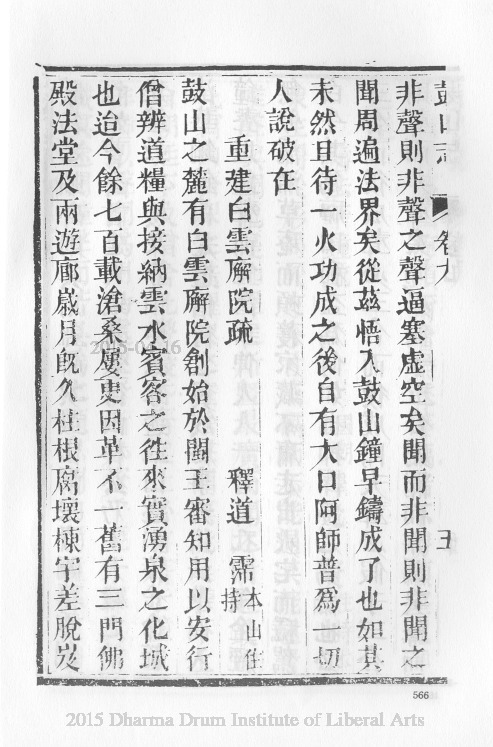 鼓山志 卷九 五
非聲則非聲之聲逼塞虛空矣聞而非聞則非聞之
聞周遍法界矣從茲悟入鼓山鐘早鑄成了也如其
未然且待一火功成之後自有大口阿師普為一切
人說破在
重建白雲廨院疏 釋道霈 本山住持
鼓山之麓有白雲廨院創始於閩王審知用以安行
僧辨道糧與接納雲水賓客之徃來實湧泉之化城
也迨今餘七百載滄桑屢吏因革不一舊有三門佛
殿法堂及兩遊廊歲月既久柱根腐壞棟宇差脫岌
2015-04-16
566
2015 Dharma Drum Institute of Liberal Arts